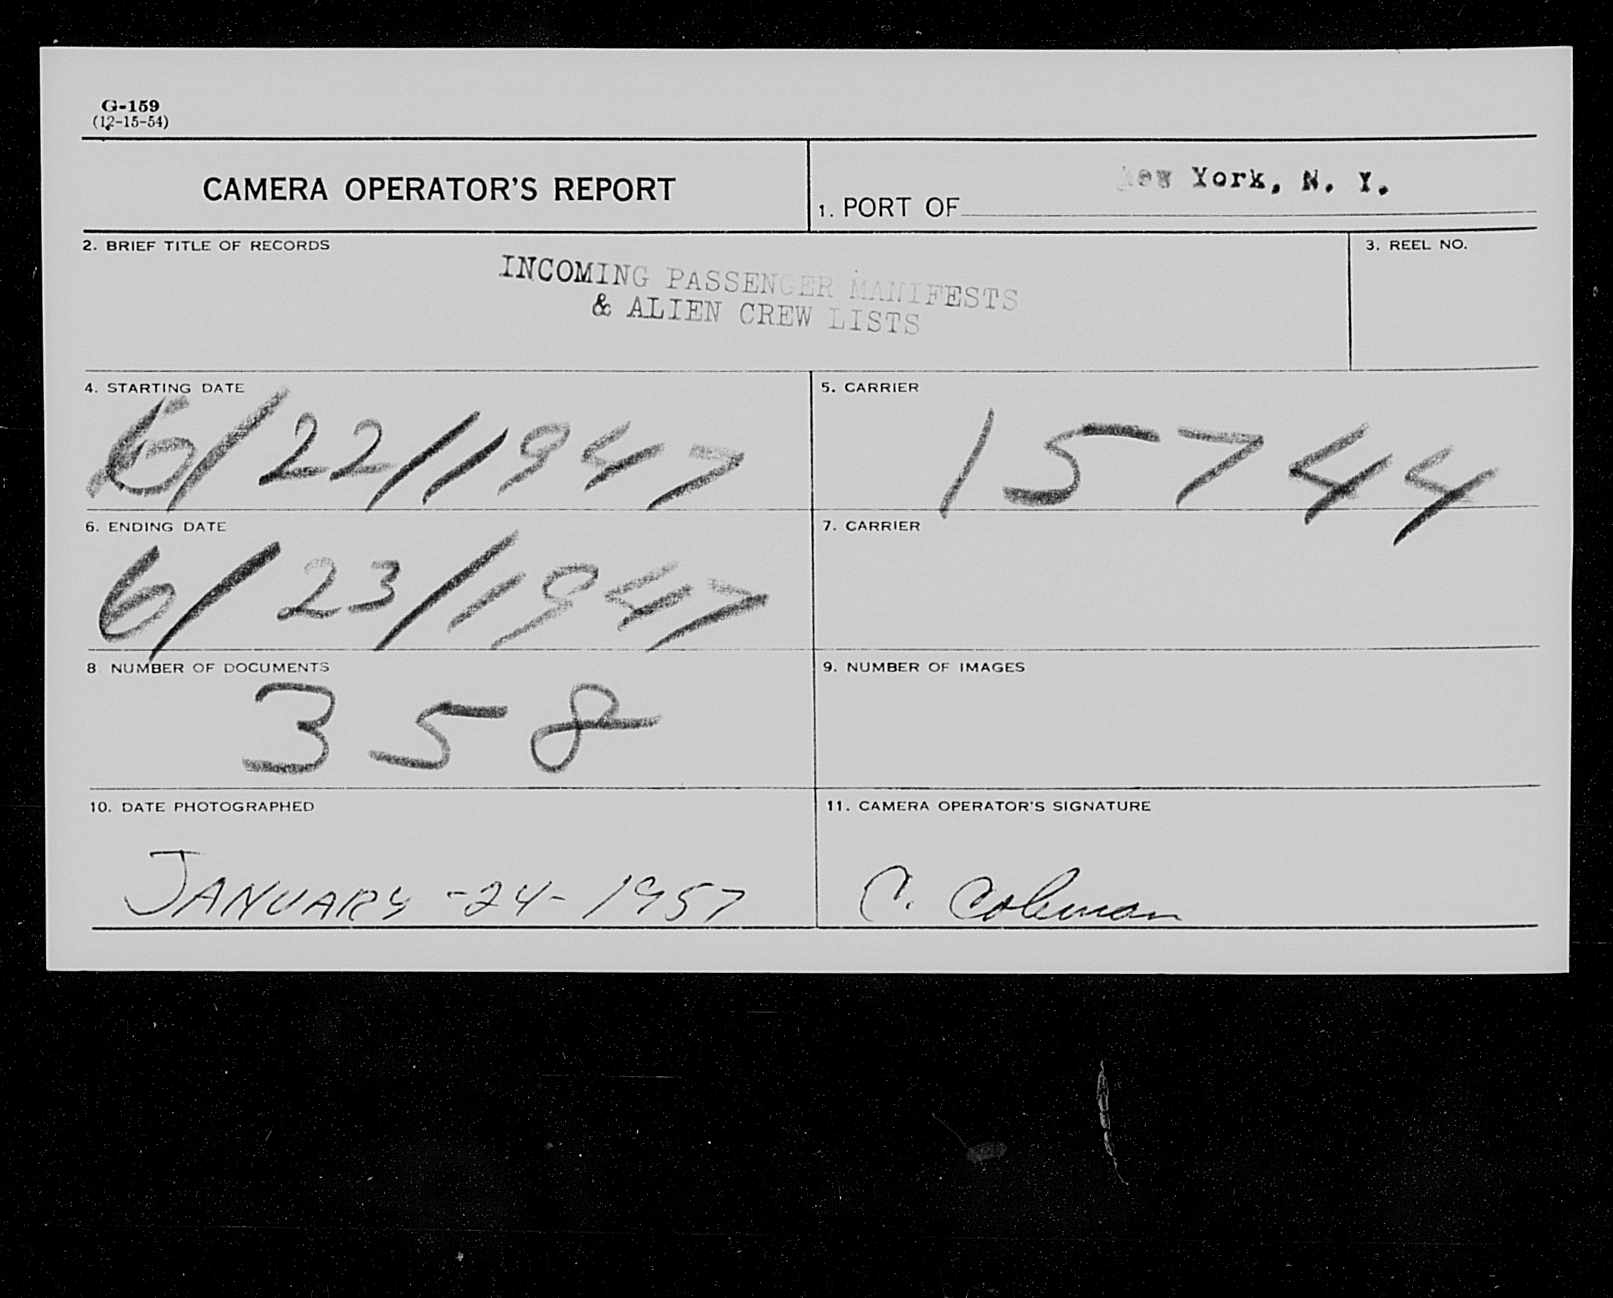 G-159
(12-15-54)
CAMERA OPERATOR'S REPORT
1. PORT OF New York, N. Y.
2. BRIEF TITLE OF RECORDS
INCOMING PASSENGER MANIFESTS
& ALIEN CREW LISTS
3. REEL NO.
4. STARTING DATE
6/22/1947
5. CARRIER
15744
6. ENDING DATE
6/23/1947
7. CARRIER
8 NUMBER OF DOCUMENTS
358
9. NUMBER OF IMAGES
10. DATE PHOTOGRAPHED
JANUARY -24- 1957
11. CAMERA OPERATOR'S SIGNATURE
C. Coleman